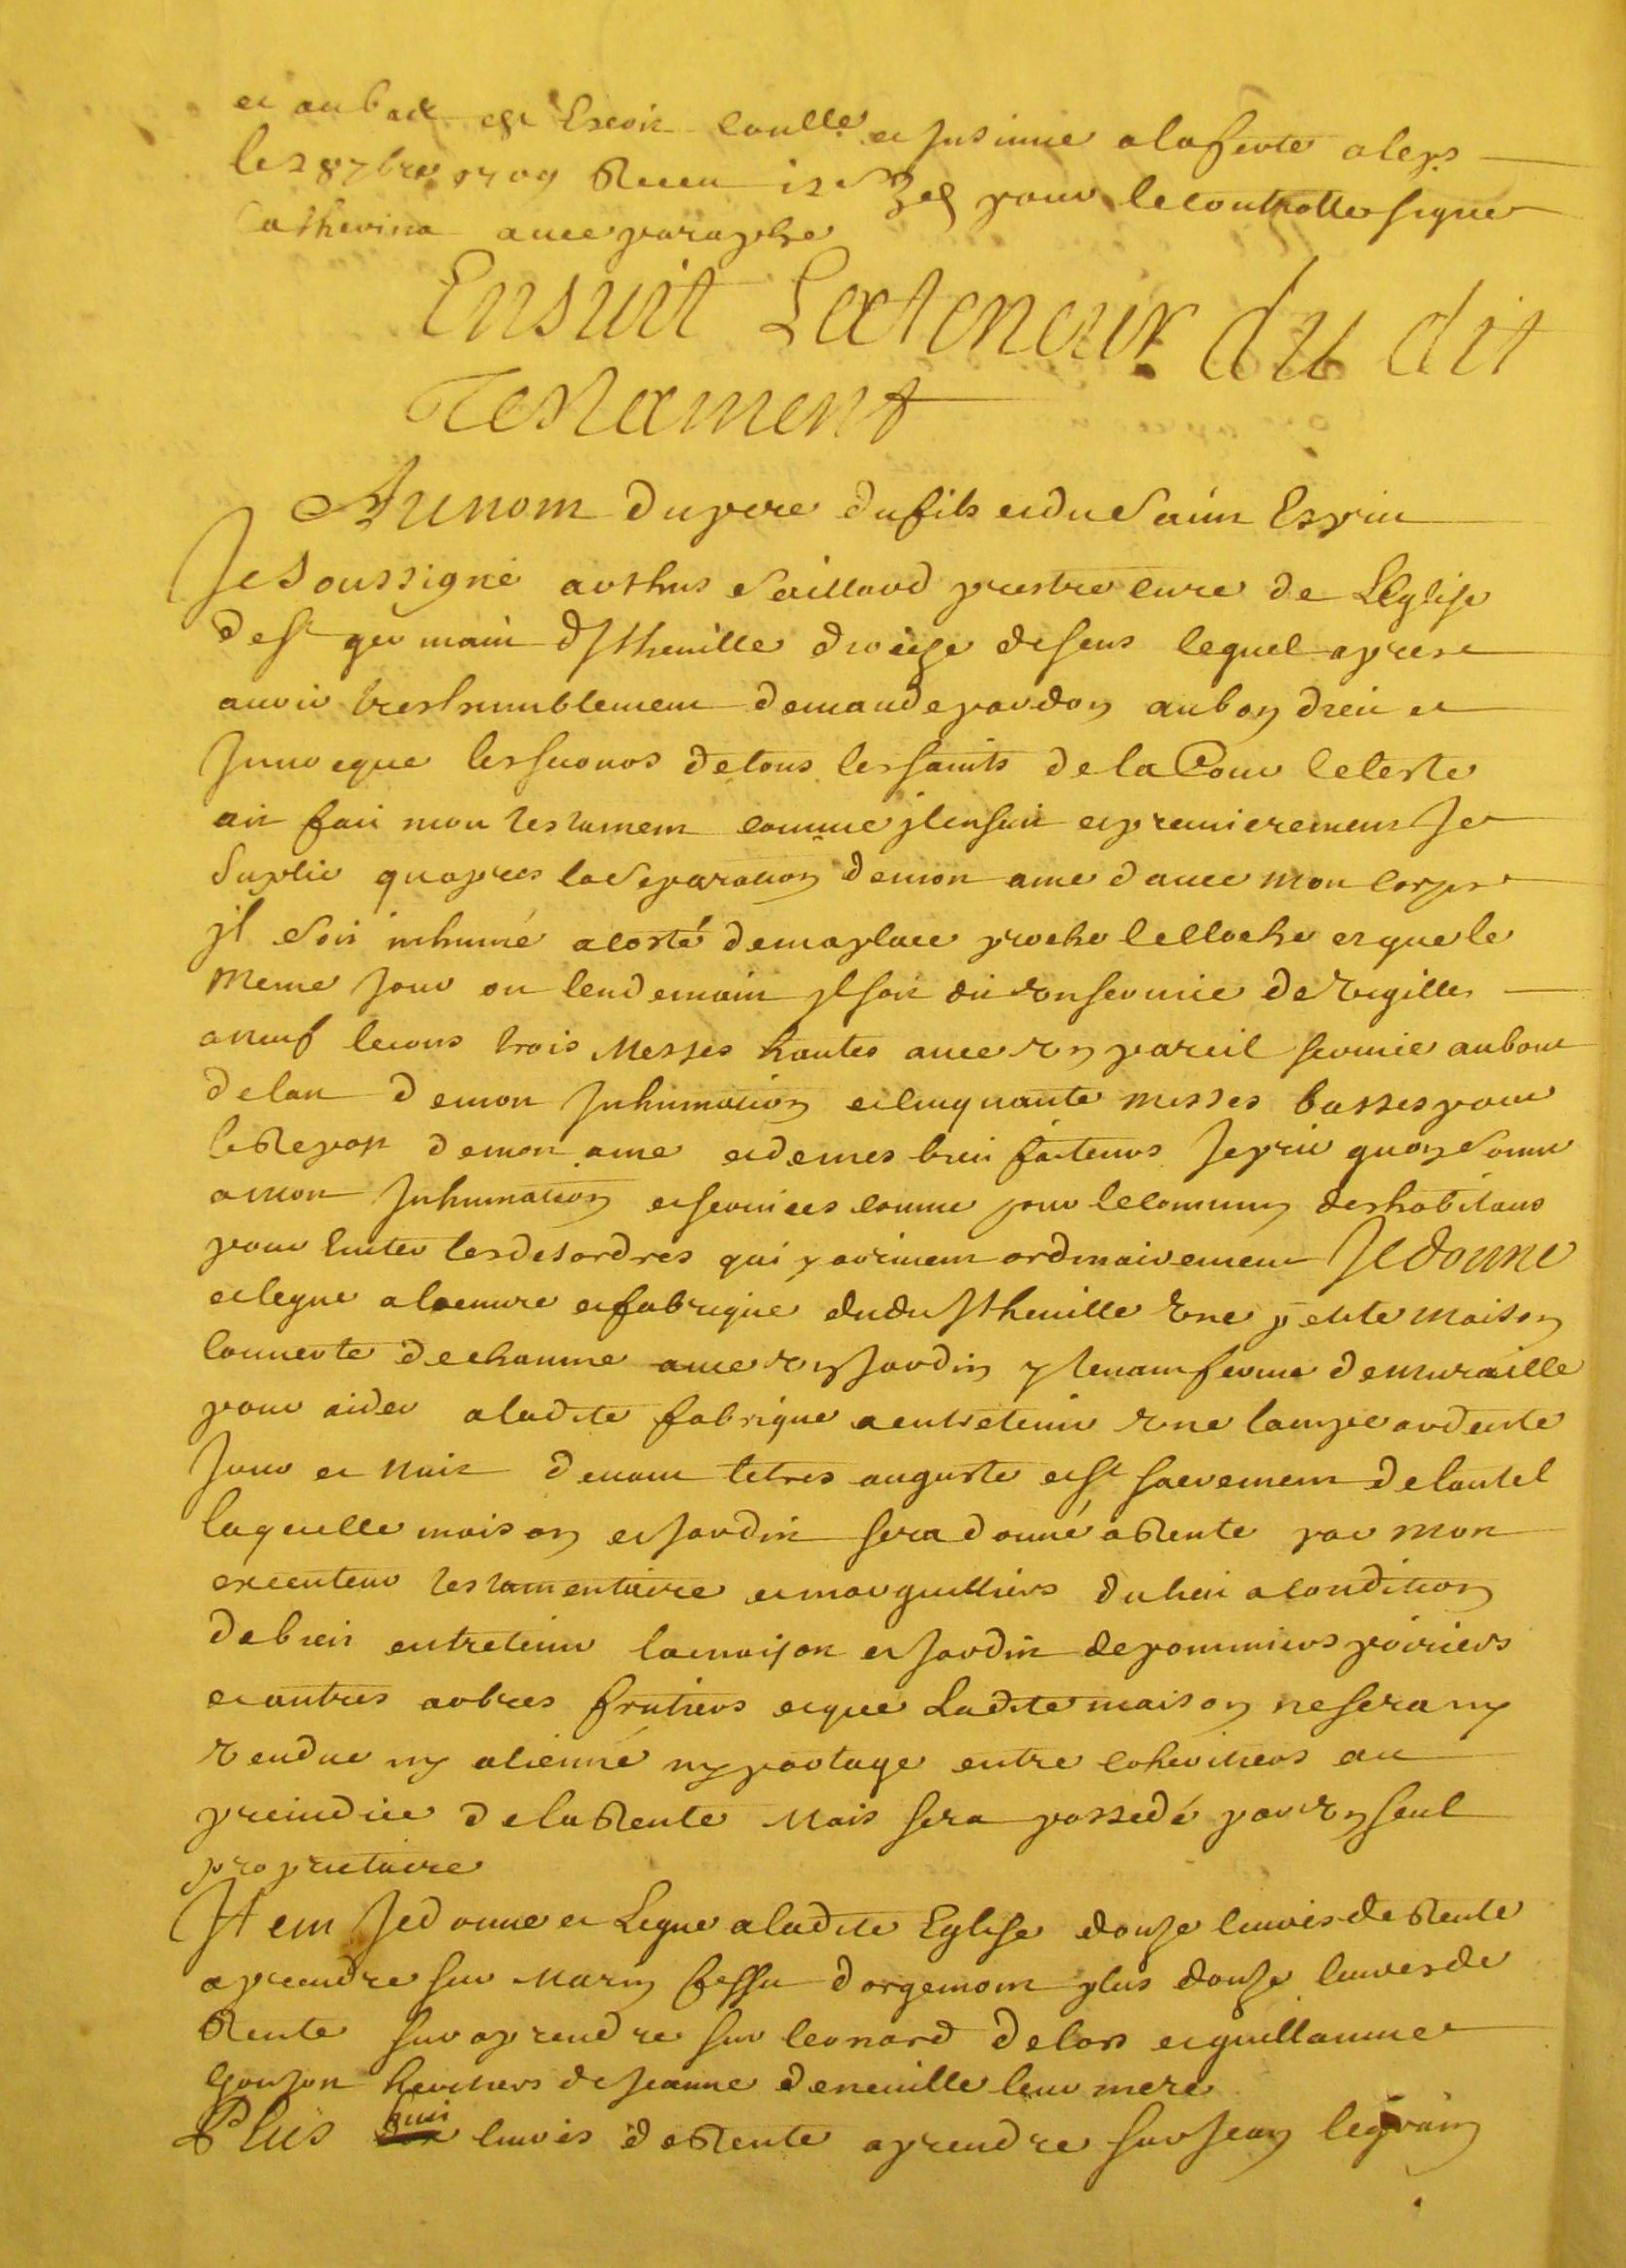 et au bas est Escrit Con.lle et Insinué a la ferté aleps
le 28 7bre 1709 Receu 12 s 3 d pour le controlle signé
Catherina avec paraphe
Ensuit La teneur du dit
Testament
Au nom du pere du fils et du Saint Esprit
Je Soussigné arthus Saillard prestre curé de L'Eglise
de St germain D'Itheuille diocise de sens lequel apres
auoir tres humblement demande pardon au bon dieu et
Inuoque les suonos de tous les saints de la Cour Celeste
ait fait mon testament comme il ensuit et premierement Je
Suplie qu apres la Separation de mon ame d auec mon corps
il soit inhumé a costé de ma place proche le cloche et que le
meme Jour ou lendemain il soit dit vn seruice de vigilles
a neuf lecons trois Messes hautes auec vn pareil seruice au bout
de lan de mon Inhumation et cinquante messes basses pour
le Repos de mon ame et de mes bien faiteurs Je prie quon sonne
a mon Inhumation et seruices comme pour le commun des habitans
pour Euiter les desordres qui y ariuent ordinairement Je donne
et legue a l'oeuure et fabrique dudit Itheuille Vne petite maison
couuerte de chaume auec vn Jardin y tenant fermé de muraille
pour aider a ladite fabrique a entretenir Vne lampe ardente
Jour et Nuit deuant le tres auguste et St sacrement de lautel
laquelle maison et Jardin sera donné a Rente par mon
executeur testamentaire et marguilliers du lieu a condition
de bien entretenir la maison et Jardin de pommiers poiriers
et autres arbres frutiers et que Ladite maison ne sera ny
vendue ny alienné ny partage entre coheritiers au
preiudice de la Rente Mais sera possedé par vn seul
proprietaire
Item Je donne et Legue a ladite Eglise douze liures de Rente
a prendre sur Marin fessu d'orgemont plus douze liures de
Rente sur a prendre sur leonard delors et guillaume
Goujon heritiers de Jeanne deneuille leur mere
Plus huit liures de Rente a prendre sur Jean legrain